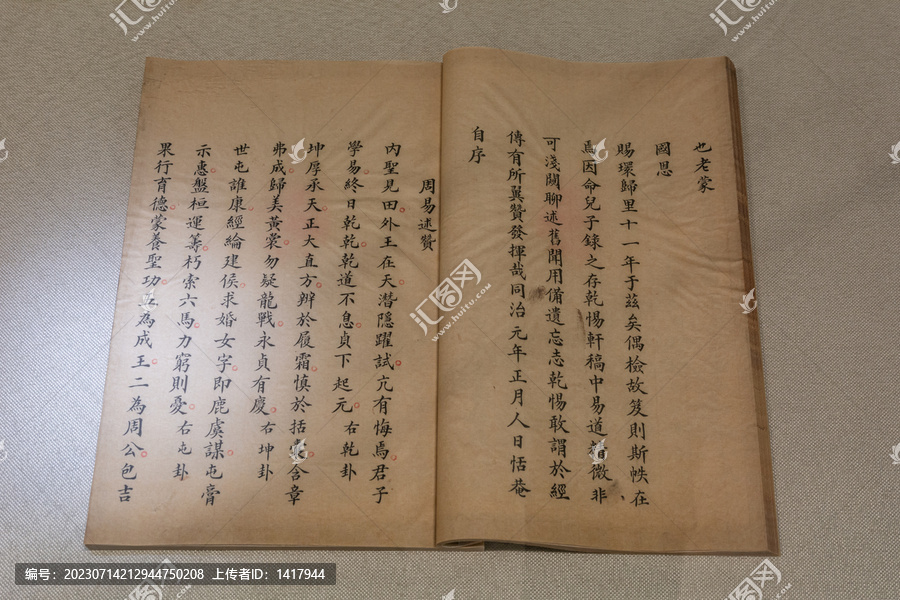 也老蒙
國恩
賜環歸里十一年于茲矣偶檢故笈則斯帙在
焉因命兒子錄之存乾惕軒稿中易道精微非
可淺闚聊述舊聞用備遺忘志乾惕敢謂於經
傳有所翼贊發揮哉同治元年正月人日恬菴
自序
周易述贊
內聖見田外王在天潛隱躍試亢有悔焉君子
學易終日乾乾乾道不息貞下起元右乾卦
坤厚承天正大直方辨於履霜慎於括囊含章
弗成歸美黃裳勿疑龍戰永貞有慶右坤卦
世屯誰康經綸建侯求婚女字即鹿虞謀屯膏
示惠盤桓運籌朽索六馬力窮則憂右屯卦
果行育德蒙養聖功五為成王二為周公包吉
汇图网
www.huitu.com
编号：20230714212944750208 上传者ID：1417944